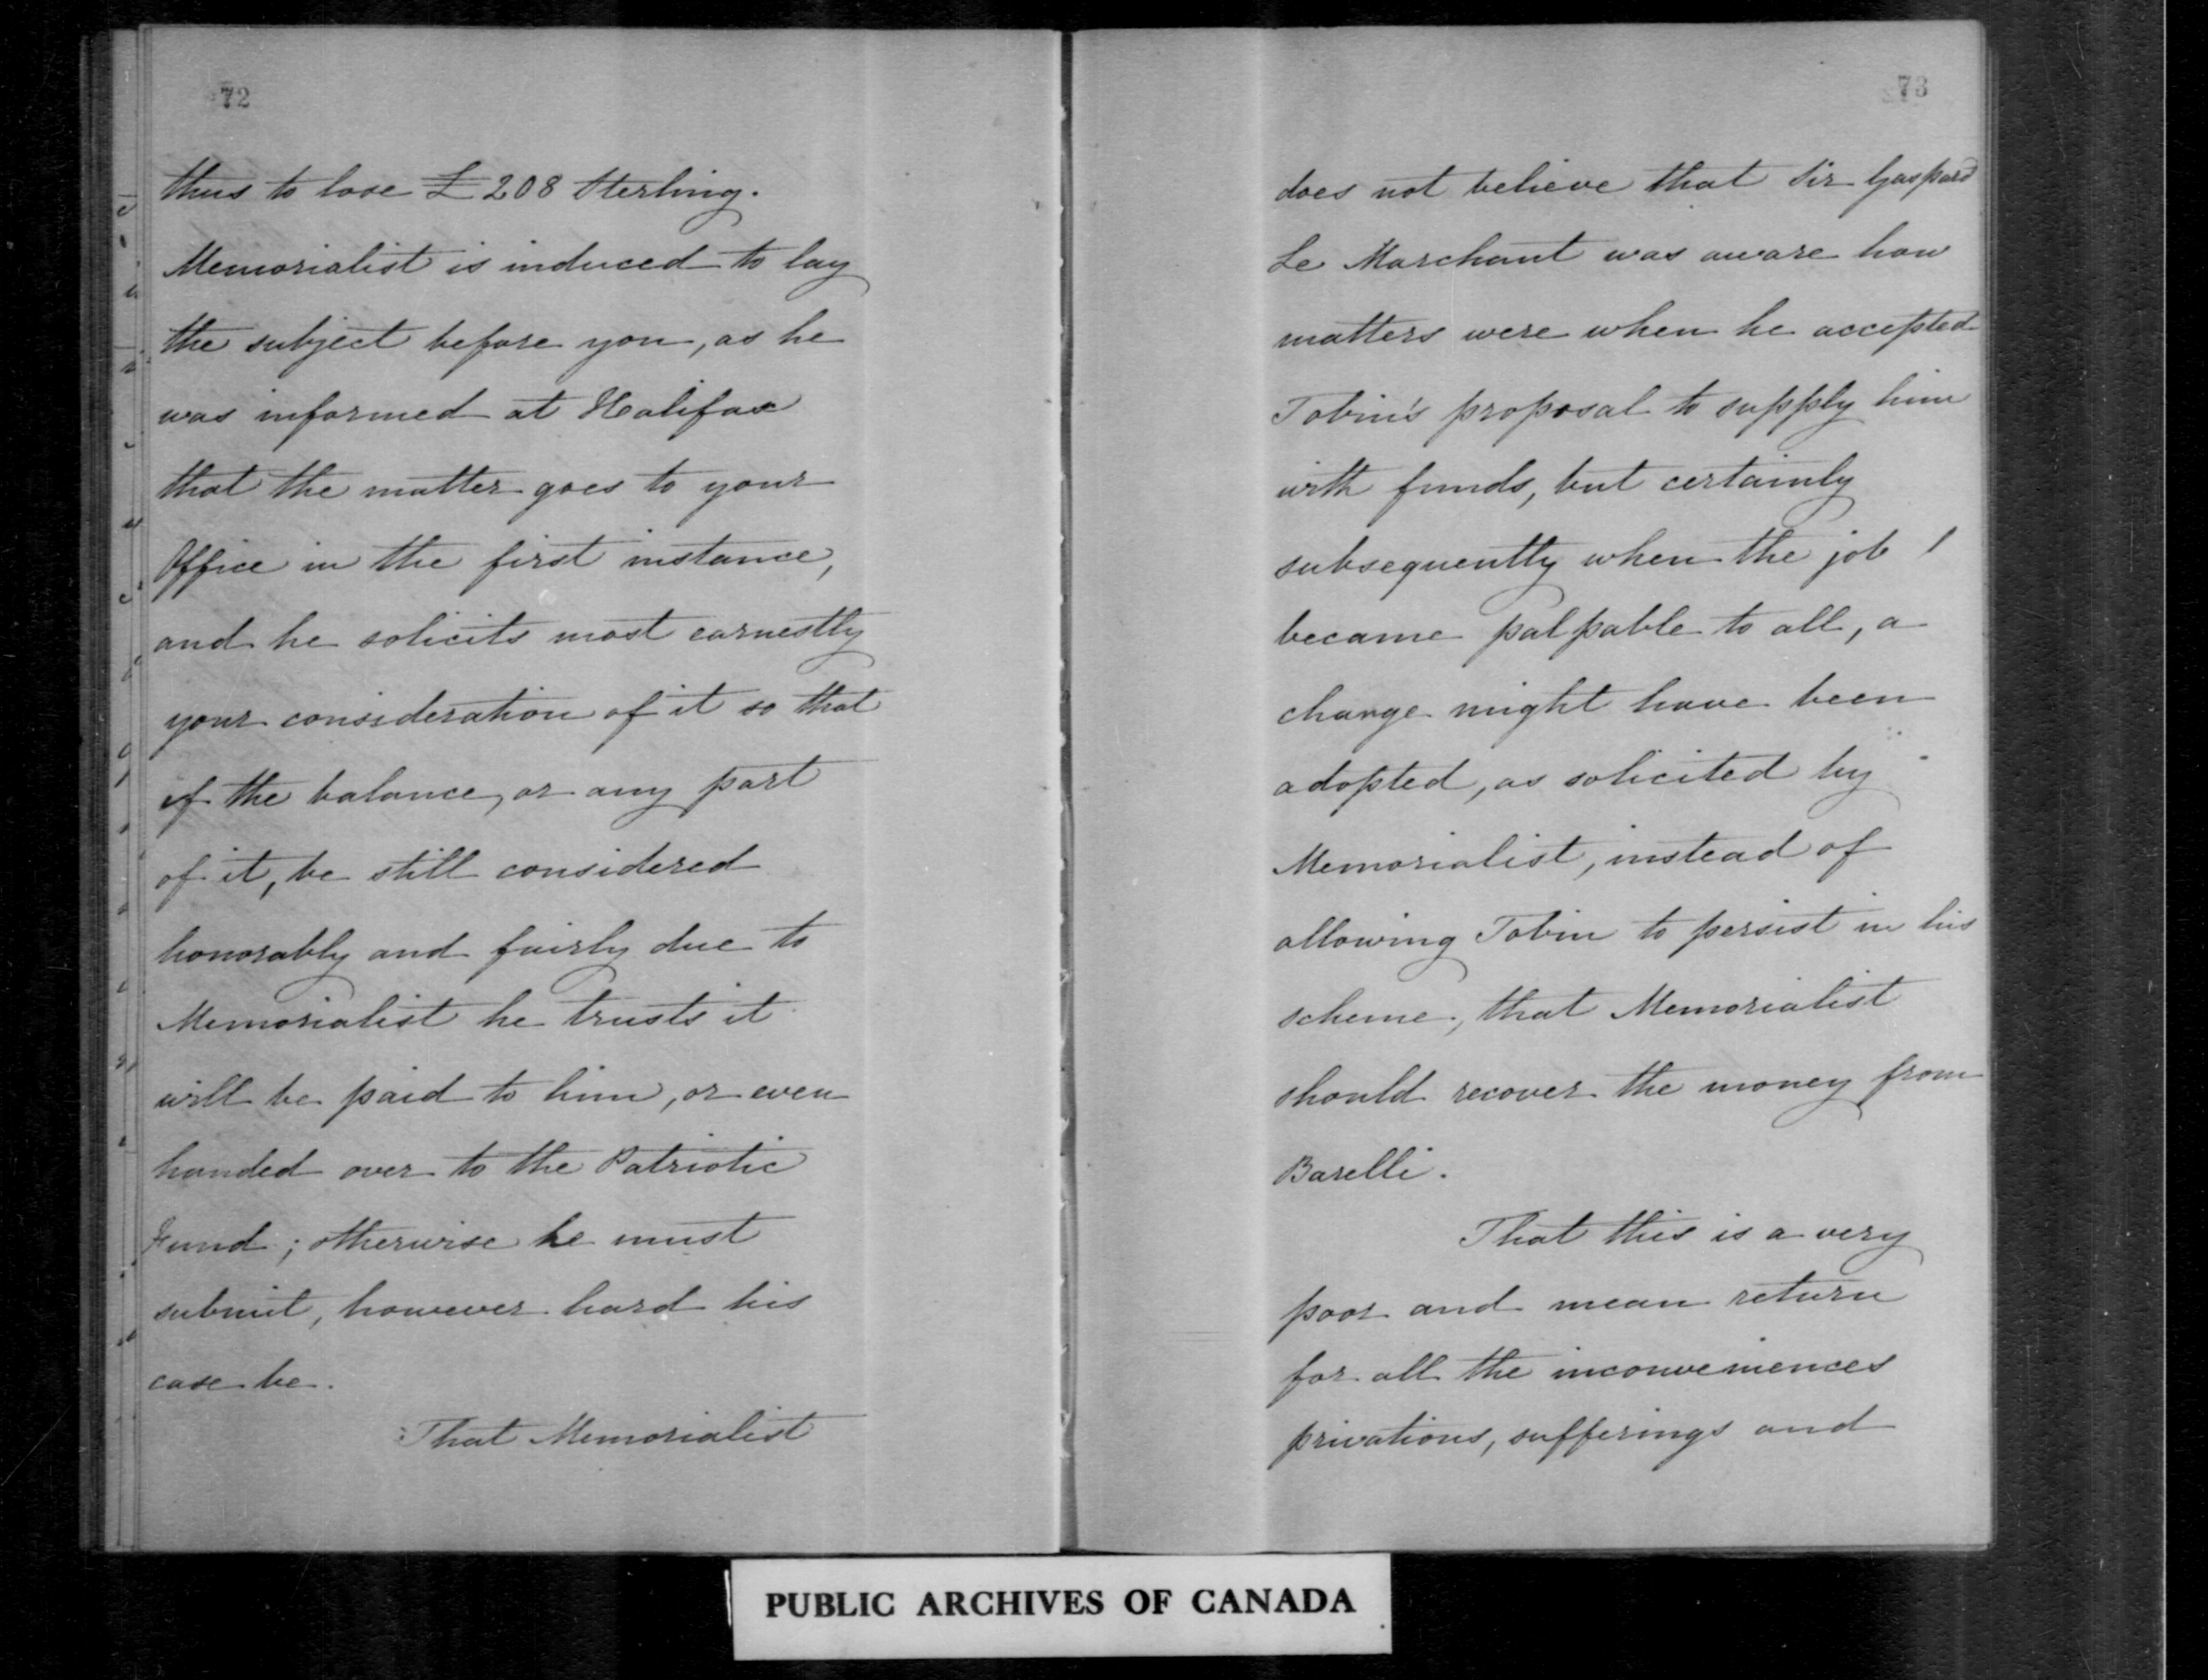 72
thus to lose £208 Sterling.
Memorialist is induced to lay
the subject before you, as he
was informed at Halifax
that the matter goes to your
Office in the first instance,
and he solicits most earnestly
your consideration of it so that
if the balance, or any part
of it, be still considered
honorably and fairly due to
Memorialist he trusts it
will be paid to him, or even
handed over to the Patriotic
Fund; otherwise he must
submit, however hard his
case be.
That Memorialist
73
does not believe that Sir Gaspard
Le Marchant was aware how
matters were when he accepted
Tobin's proposal to supply him
with funds, but certainly
subsequently when the job
became palpable to all, a
change might have been
adopted, as solicited by
Memorialist, instead of
allowing Tobin to persist in his
scheme, that Memorialist
should recover the money from
Barelli.
That this is a very
poor and mean return
for all the inconveniences
privations, sufferings and
PUBLIC ARCHIVES OF CANADA